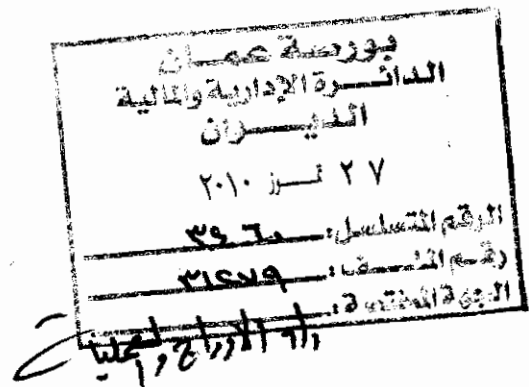 بورصة عمان
الدائرة الإدارية والمالية
الديوان
٢٧ تموز ٢٠١٠
الرقم المتسلسل: ٣٩٦٠
رقم الملف: ٣١٤٧٩
الجهة المختصة: